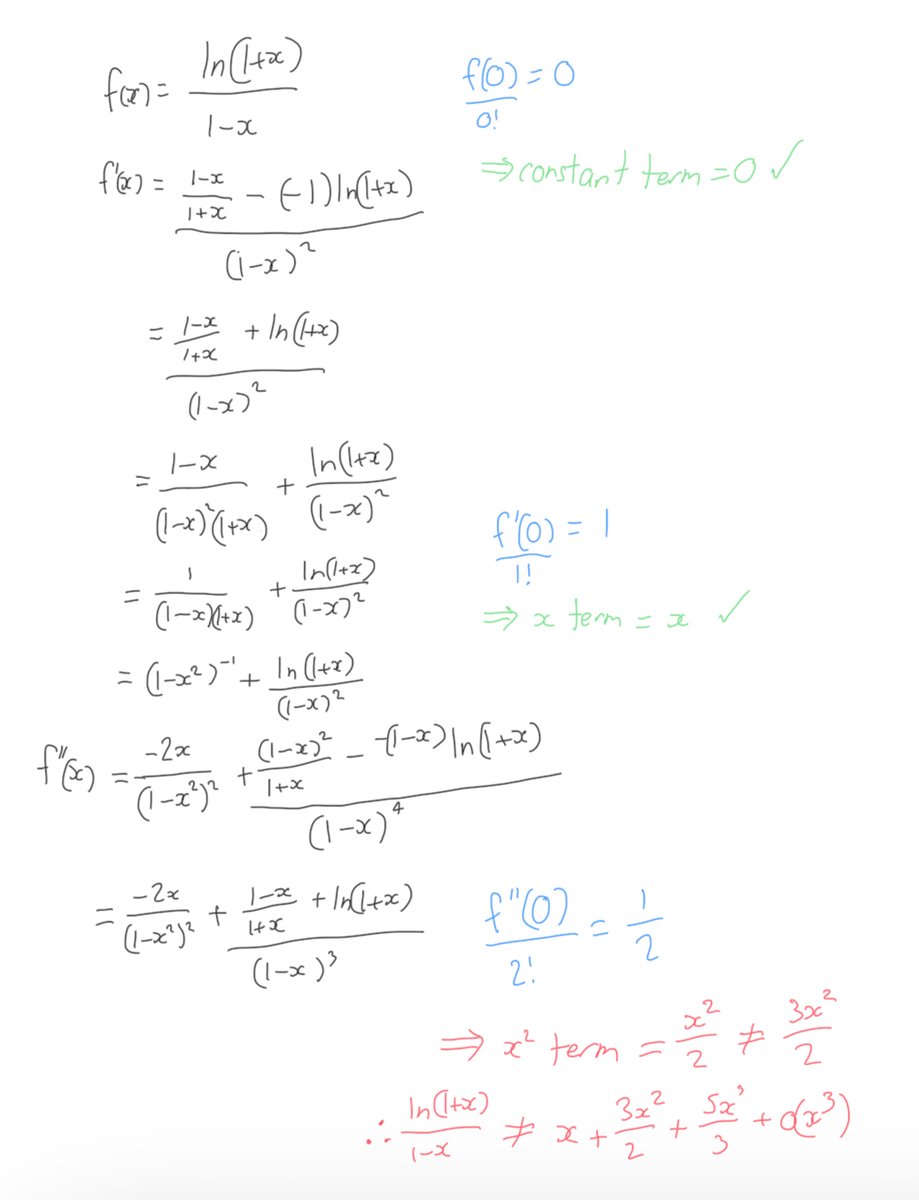 f(x) = ln(1+x) / 1-x
f(0)/0! = 0
⇒ constant term = 0 ✓
f'(x) = ((1-x)/(1+x) - (-1) ln(1+x)) / (1-x)²
= ((1-x)/(1+x) + ln(1+x)) / (1-x)²
= (1-x) / ((1-x)²(1+x)) + ln(1+x) / (1-x)²
f'(0)/1! = 1
= 1 / ((1-x)(1+x)) + ln(1+x) / (1-x)²
⇒ x term = x ✓
= (1-x²)⁻¹ + ln(1+x) / (1-x)²
f''(x) = -2x / (1-x²)² + ((1-x)²/(1+x) - -(1-x) ln(1+x)) / (1-x)⁴
= -2x / (1-x²)² + ((1-x)/(1+x) + ln(1+x)) / (1-x)³
f''(0)/2! = 1/2
⇒ x² term = x²/2 ≠ 3x²/2
∴ ln(1+x) / 1-x ≠ x + 3x²/2 + 5x³/3 + O(x³)